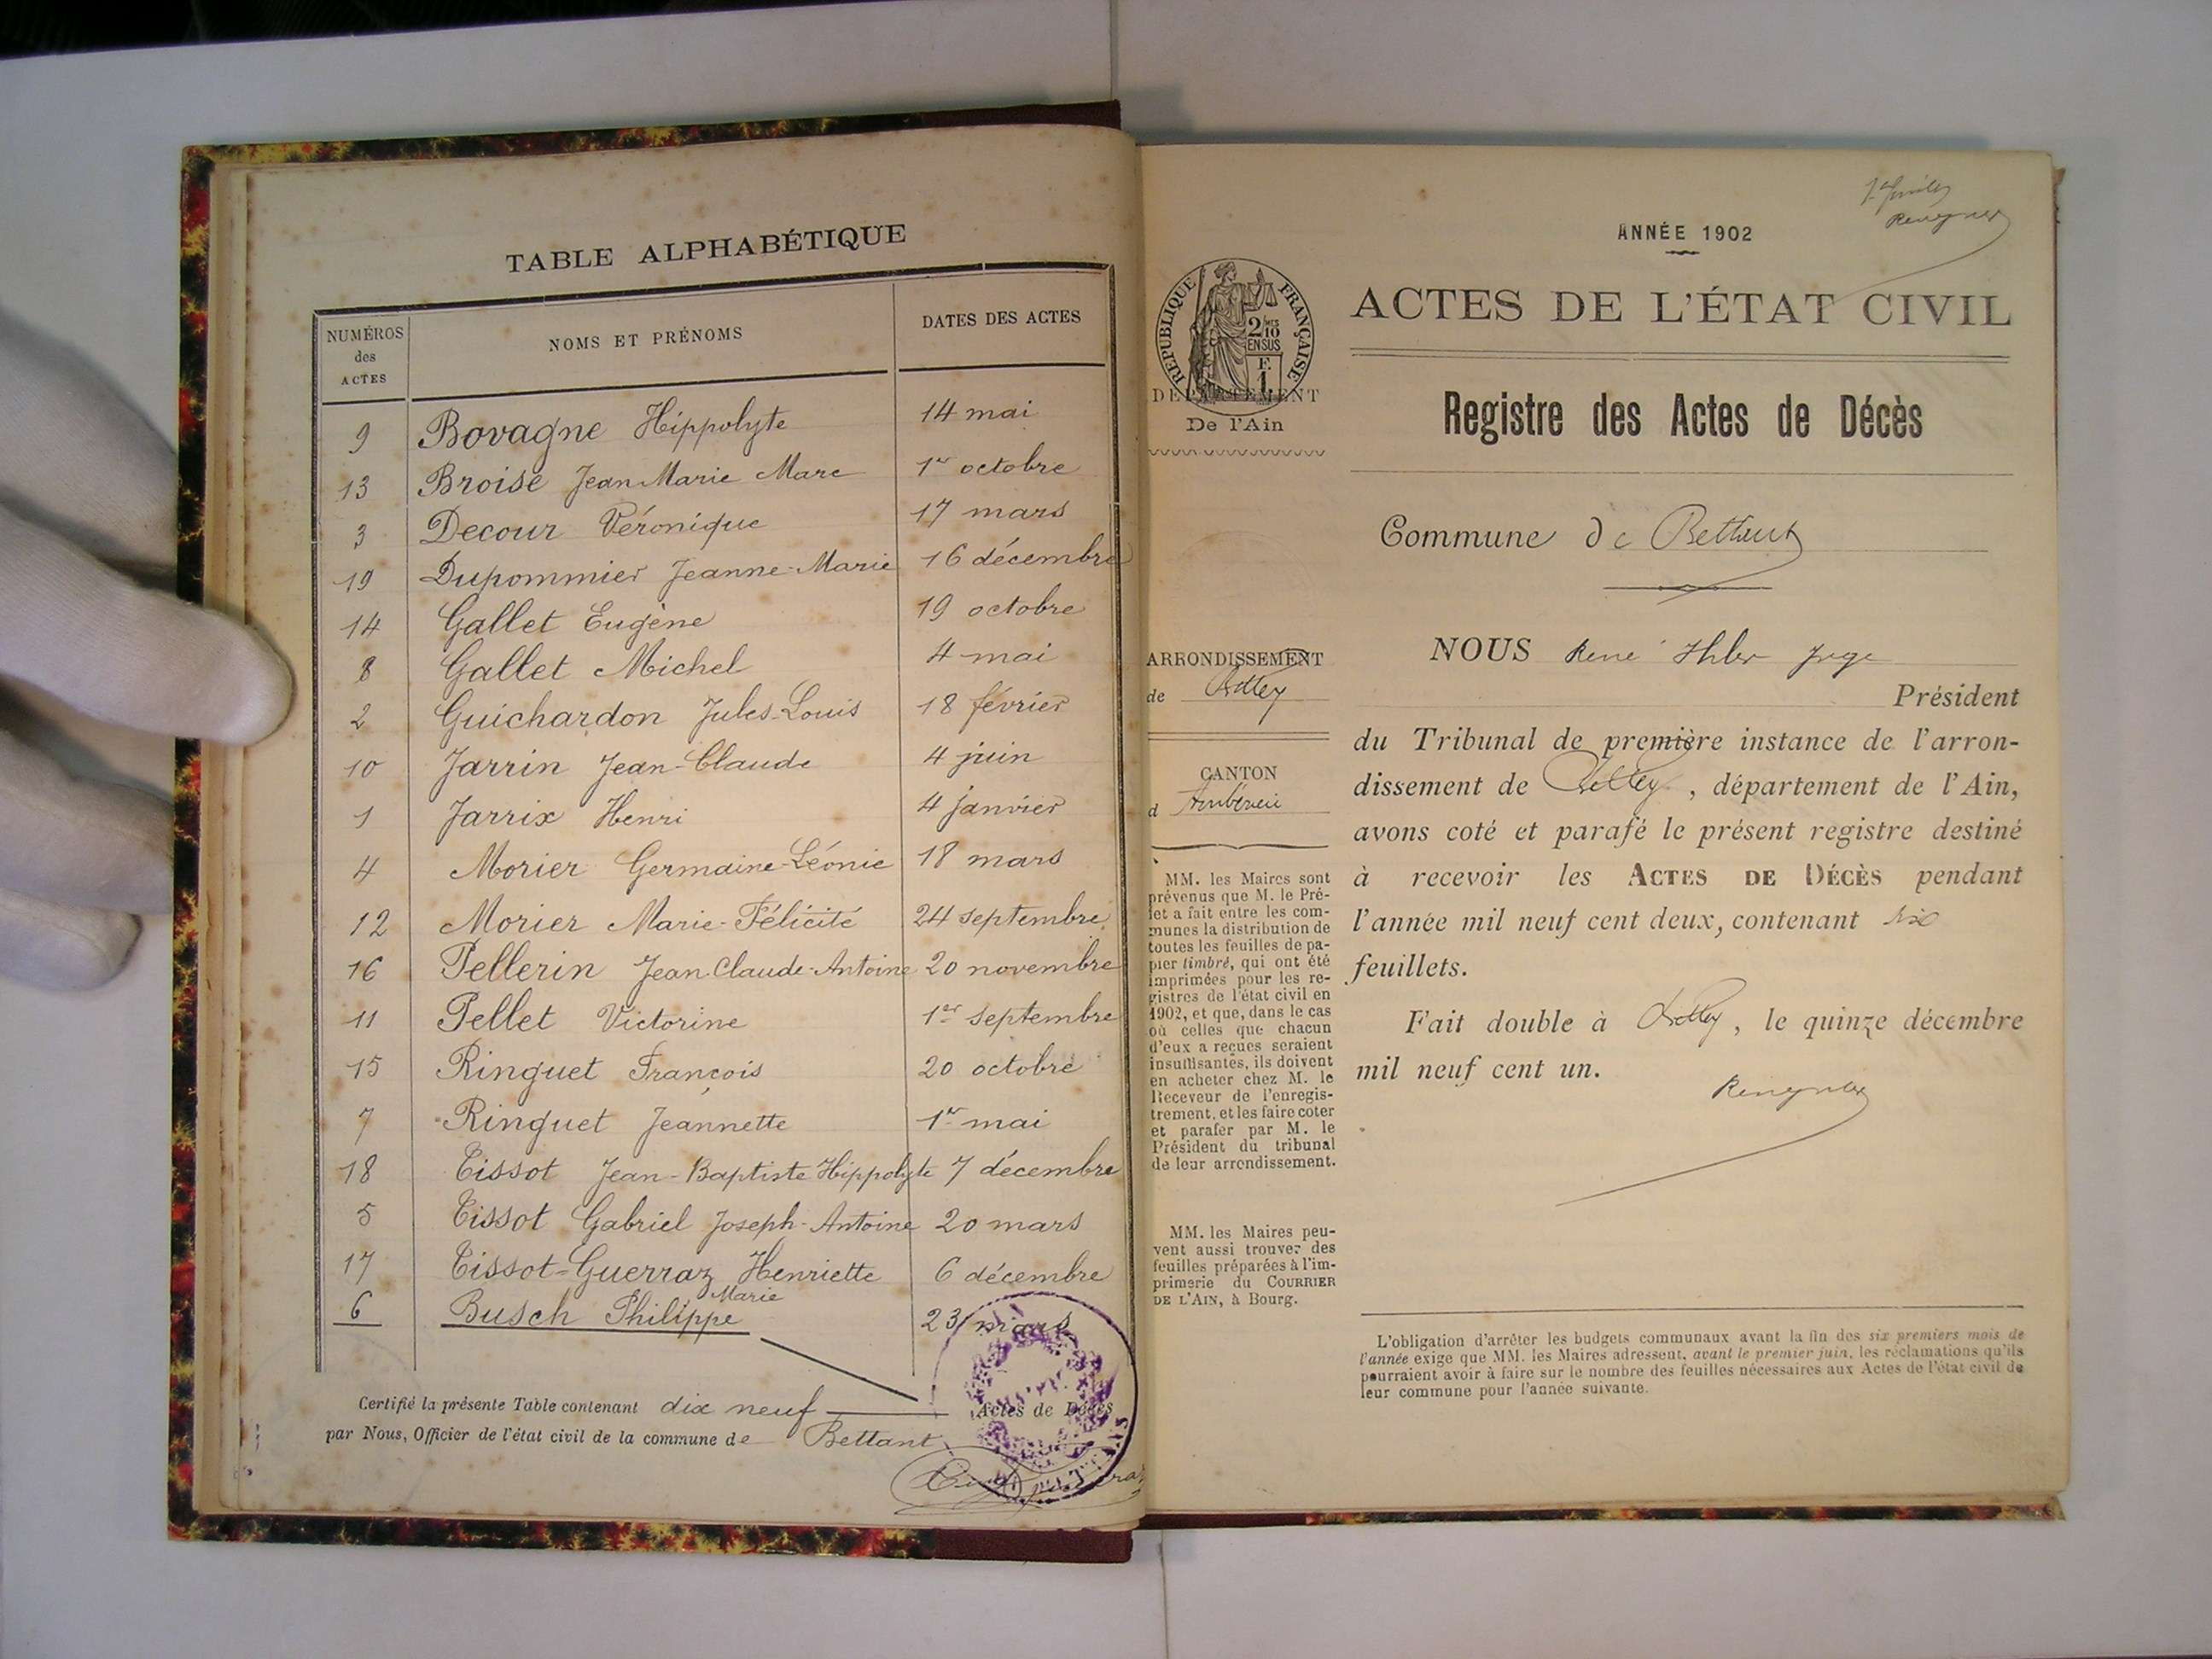 TABLE ALPHABÉTIQUE
NUMÉROS des ACTES NOMS ET PRÉNOMS DATES DES ACTES
9 Bovagne Hippolyte 14 mai
13 Broise Jean Marie Marc 1er octobre
3 Decour Véronique 17 mars
19 Dupommier Jeanne-Marie 16 décembre
14 Gallet Eugène 19 octobre
8 Gallet Michel 4 mai
2 Guichardon Jules-Louis 18 février
10 Jarrin Jean-Claude 4 juin
1 Jarrix Henri 4 janvier
4 Morier Germaine-Léonie 18 mars
12 Morier Marie-Félicité 24 septembre
16 Pellerin Jean-Claude-Antoine 20 novembre
11 Pellet Victorine 1er septembre
15 Ringuet François 20 octobre
7 Ringuet Jeannette 1er mai
18 Tissot Jean-Baptiste Hippolyte 7 décembre
5 Tissot Gabriel Joseph-Antoine 20 mars
17 Tissot-Guerraz Henriette 6 décembre
Marie
6 Busch Philippe 23 mars
Certifié la présente Table contenant dix neuf Actes de Décès
par Nous, Officier de l'état civil de la commune de Bettant
ANNÉE 1902
RÉPUBLIQUE FRANÇAISE
2/10 EN SUS
F. 1.
DÉPARTEMENT
De l'Ain
ARRONDISSEMENT
de Belley
CANTON
d'Ambérieu
MM. les Maires sont
prévenus que M. le Pré-
fet a fait entre les com-
munes la distribution de
toutes les feuilles de pa-
pier timbré, qui ont été
imprimées pour les re-
gistres de l'état civil en
1902, et que, dans le cas
où celles que chacun
d'eux a reçues seraient
insuffisantes, ils doivent
en acheter chez M. le
Receveur de l'enregis-
trement, et les faire coter
et parafer par M. le
Président du tribunal
de leur arrondissement.
MM. les Maires peu-
vent aussi trouver des
feuilles préparées à l'im-
primerie du COURRIER
DE L'AIN, à Bourg.
ACTES DE L'ÉTAT CIVIL
Registre des Actes de Décès
Commune de Bettant
NOUS René Ihler Juge
Président
du Tribunal de première instance de l'arron-
dissement de Belley, département de l'Ain,
avons coté et parafé le présent registre destiné
à recevoir les ACTES DE DÉCÈS pendant
l'année mil neuf cent deux, contenant six
feuillets.
Fait double à Belley, le quinze décembre
mil neuf cent un.
L'obligation d'arrêter les budgets communaux avant la fin des six premiers mois de
l'année exige que MM. les Maires adressent, avant le premier juin, les réclamations qu'ils
pourraient avoir à faire sur le nombre des feuilles nécessaires aux Actes de l'état civil de
leur commune pour l'année suivante.